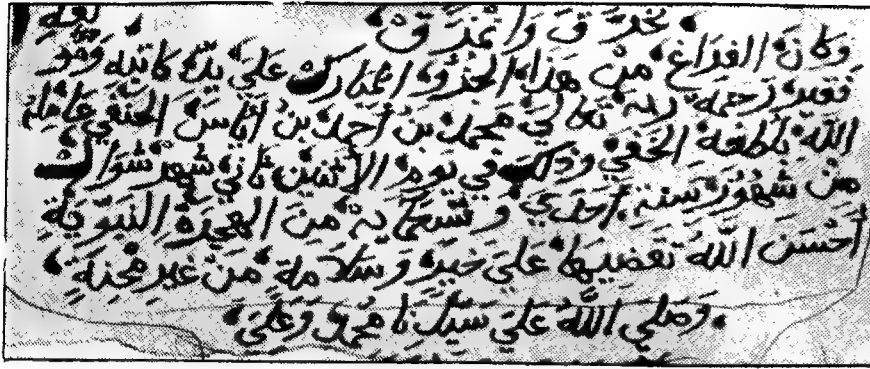 تخرق وانمزق
وكان الفراغ من هذا الجزو المبارك علي يد كاتبه وهو
فقير رحمة ربه تعالي محمد بن أحمد بن اناس الحنفي عامله
الله بلطفه الخفي وذلك في يوم الاثنين ثاني شهر شوال
من شهور سنة احدي وتسعماية من الهجرة النبوية
أحسن الله تقضيها علي خير وسلامة من غير محنة
وصلي الله علي سيدنا محمد وعلي